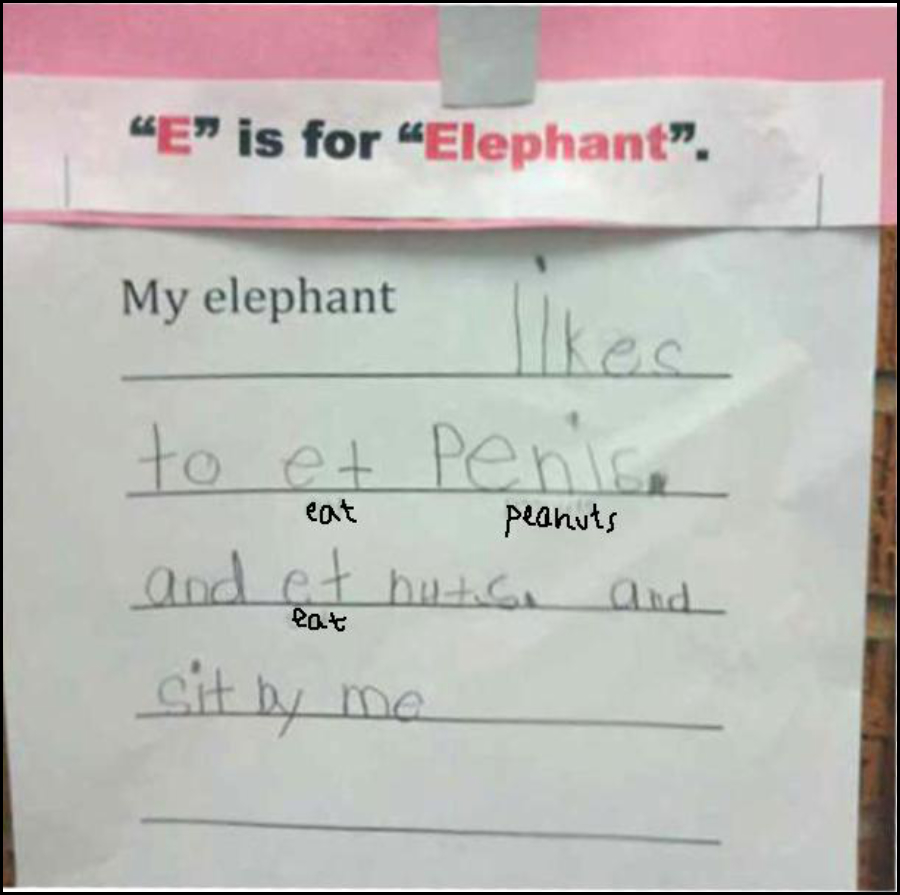 “E” is for “Elephant”.
My elephant likes
to et Penis.
eat peanuts
and et nuts. and
eat
sit by me